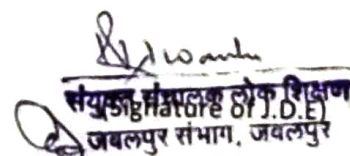 संयुक्त संचालक लोक शिक्षण
(Signature of J.D.E)
जबलपुर संभाग, जबलपुर